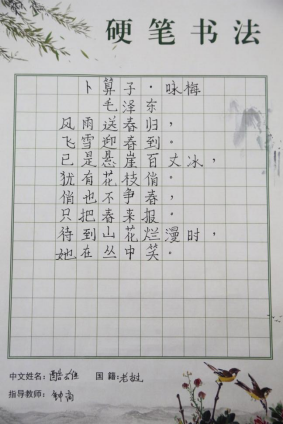 硬笔书法
卜算子·咏梅
毛泽东
风雨送春归，
飞雪迎春到。
已是悬崖百丈冰，
犹有花枝俏。
俏也不争春，
只把春来报。
待到山花烂漫时，
她在丛中笑。
中文姓名： 国籍：老挝
指导教师：